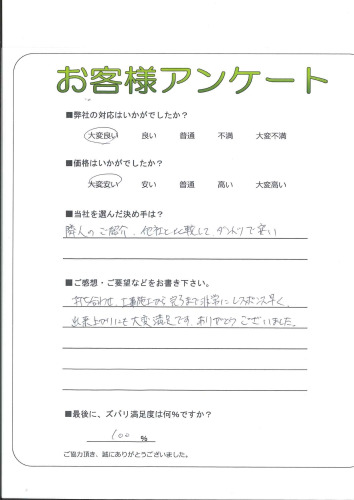 お客様アンケート
■弊社の対応はいかがでしたか？
大変良い 良い 普通 不満 大変不満
■価格はいかがでしたか？
大変安い 安い 普通 高い 大変高い
■当社を選んだ決め手は？
隣人のご紹介、他社と比較して、ダントツで安い
■ご感想・ご要望などをお書き下さい。
打ち合わせ、工事施工から完了まで非常にレスポンス早く、
出来上がりにも大変満足です。ありがとうございました。
■最後に、ズバリ満足度は何%ですか？
100 %
ご協力頂き、誠にありがとうございました。